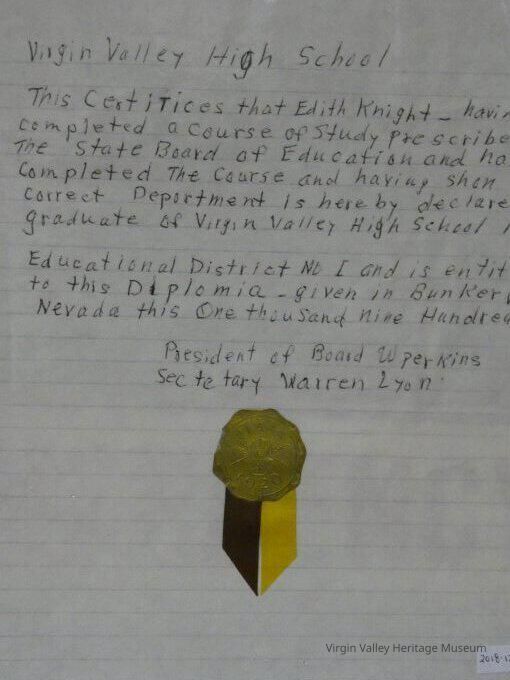 Virgin Valley High School
This Certitices that Edith Knight - havin
completed a Course of Study Prescribe
The State Board of Education and ha
Completed The Course and having shon
Correct Deportment is here by declare
graduate of Virgin Valley High School
Educational District No I and is entit
to this Diplomia - given in Bunker
Nevada this One thousand Nine Hundred
President of Board W perkins
Sectetary Warren Lyon
1920
Virgin Valley Heritage Museum
2018.12